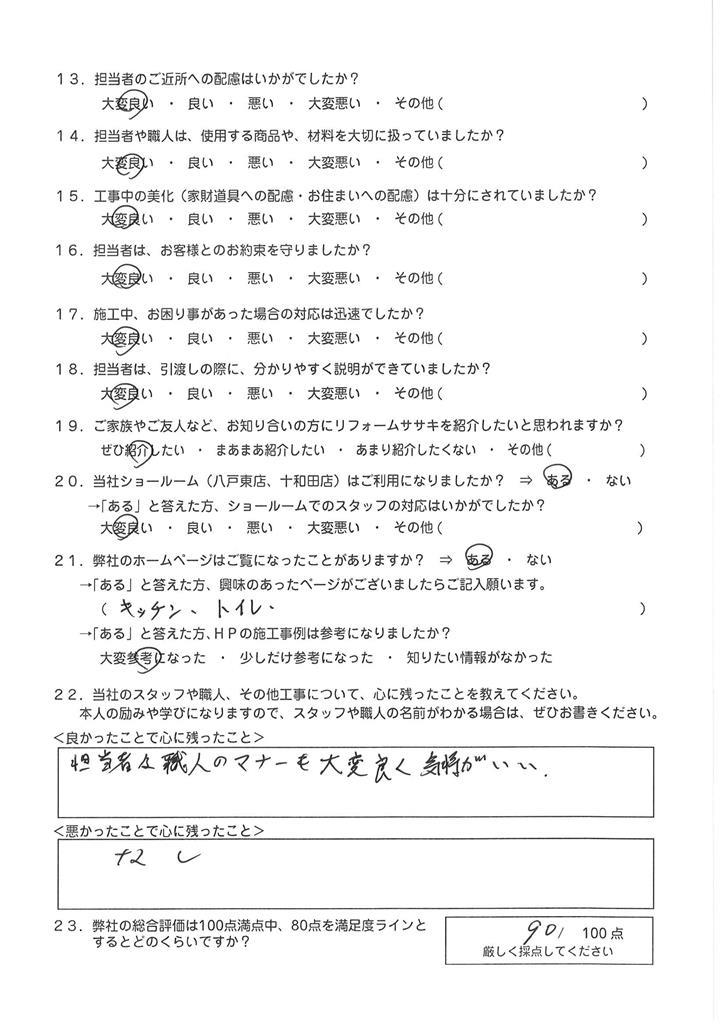 １３．担当者のご近所への配慮はいかがでしたか？
大変良い ・ 良い ・ 悪い ・ 大変悪い ・ その他（ ）
１４．担当者や職人は、使用する商品や、材料を大切に扱っていましたか？
大変良い ・ 良い ・ 悪い ・ 大変悪い ・ その他（ ）
１５．工事中の美化（家財道具への配慮・お住まいへの配慮）は十分にされていましたか？
大変良い ・ 良い ・ 悪い ・ 大変悪い ・ その他（ ）
１６．担当者は、お客様とのお約束を守りましたか？
大変良い ・ 良い ・ 悪い ・ 大変悪い ・ その他（ ）
１７．施工中、お困り事があった場合の対応は迅速でしたか？
大変良い ・ 良い ・ 悪い ・ 大変悪い ・ その他（ ）
１８．担当者は、引渡しの際に、分かりやすく説明ができていましたか？
大変良い ・ 良い ・ 悪い ・ 大変悪い ・ その他（ ）
１９．ご家族やご友人など、お知り合いの方にリフォームササキを紹介したいと思われますか？
ぜひ紹介したい ・ まあまあ紹介したい ・ あまり紹介したくない ・ その他（ ）
２０．当社ショールーム（八戸東店、十和田店）はご利用になりましたか？ ⇒ ある ・ ない
→「ある」と答えた方、ショールームでのスタッフの対応はいかがでしたか？
大変良い ・ 良い ・ 悪い ・ 大変悪い ・ その他（ ）
２１．弊社のホームページはご覧になったことがありますか？ ⇒ ある ・ ない
→「ある」と答えた方、興味のあったページがございましたらご記入願います。
（ キッチン、トイレ・ ）
→「ある」と答えた方、ＨＰの施工事例は参考になりましたか？
大変参考になった ・ 少しだけ参考になった ・ 知りたい情報がなかった
２２．当社のスタッフや職人、その他工事について、心に残ったことを教えてください。
本人の励みや学びになりますので、スタッフや職人の名前がわかる場合は、ぜひお書きください。
＜良かったことで心に残ったこと＞
担当者は職人のマナーも大変良く気持がいい.
＜悪かったことで心に残ったこと＞
なし
２３．弊社の総合評価は100点満点中、80点を満足度ラインと
するとどのくらいですか？
90/ 100点
厳しく採点してください